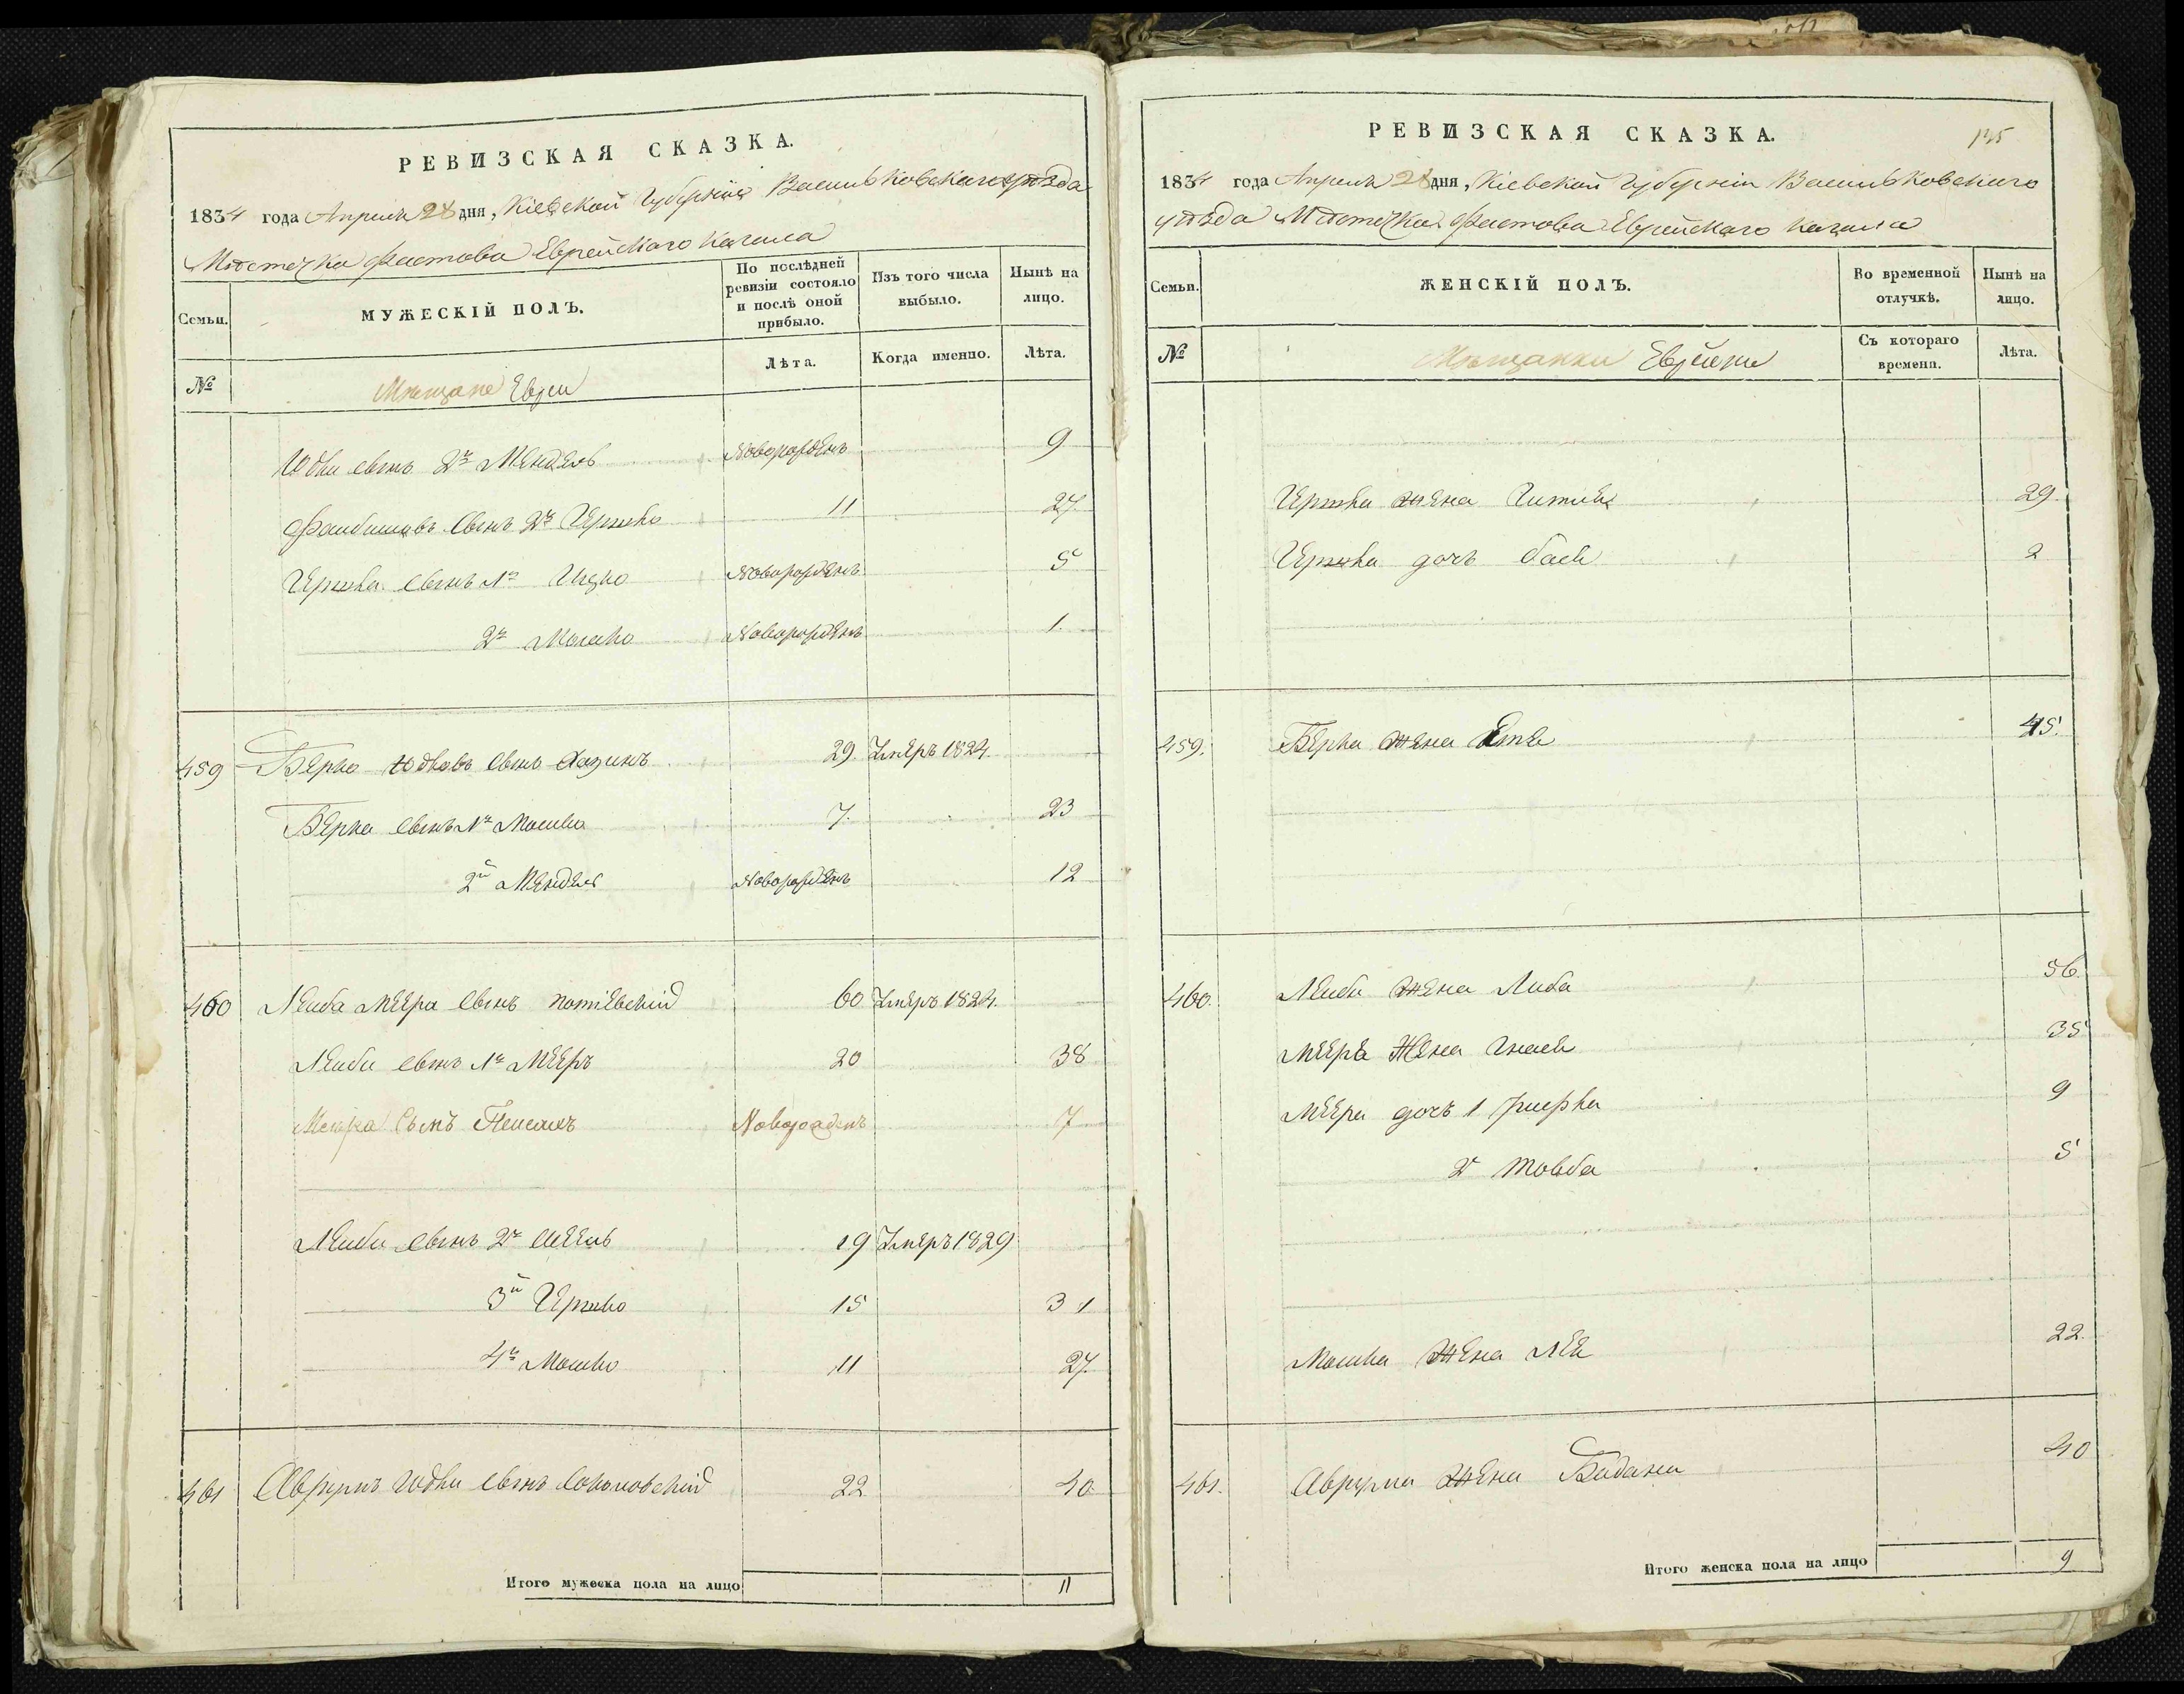 РЕВИЗСКАЯ СКАЗКА.
1834 года Апреля 28 дня, Кіевской Губерніи Васильковскаго уѣзда
Мѣстечка Фастова Еврейскаго Кагала
Семьи.
МУЖЕСКІЙ ПОЛЪ.
По послѣдней ревизіи состояло и послѣ оной прибыло.
Изъ того числа выбыло.
Нынѣ на лицо.
№
Мѣщане Евреи
Лѣта.
Когда именно.
Лѣта.
Юдки сынъ 2й Мендель Новорожденъ 9
сынъ 2й Гершко 11 27
Гершка сынъ 1й Ицко Новорожденъ 5
2й Мошко Новорожденъ 1
459 Берко Юдковъ сынъ Хазинъ 29 Умеръ 1824
Берка сынъ 1й Мошко 7 23
2й Мендель Новорожденъ 12
460 Лейба Меера сынъ 60 Умеръ 1824.
Лейби сынъ 1й Мееръ 20 38
Меера Сынъ Новорожденъ 7
Лейби сынъ 2й 19 Умеръ 1829
3й Гершко 15 31
4й Мошко 11 27
461 Аврумъ Юдки сынъ Соколовскій 22 40
Итого мужеска пола на лицо 11
РЕВИЗСКАЯ СКАЗКА. 135
1834 года Апреля 28 дня, Кіевской Губерніи Васильковскаго
уѣзда Мѣстечка Фастова Еврейскаго Кагала
Семьи.
ЖЕНСКІЙ ПОЛЪ.
Во временной отлучкѣ.
Нынѣ на лицо.
№
Мѣщанки Еврейки
Съ котораго времени.
Лѣта.
Гершка жена Гитля 29
Гершка дочь Бася 2
459. Берка жена Етя 45
460. Лейби жена Либа 56
Меера жена 35
Меера дочь 1 9
2 Товба 5
Мошка жена Лея 22
461. Аврума жена Бадана 40
Итого женска пола на лицо 9